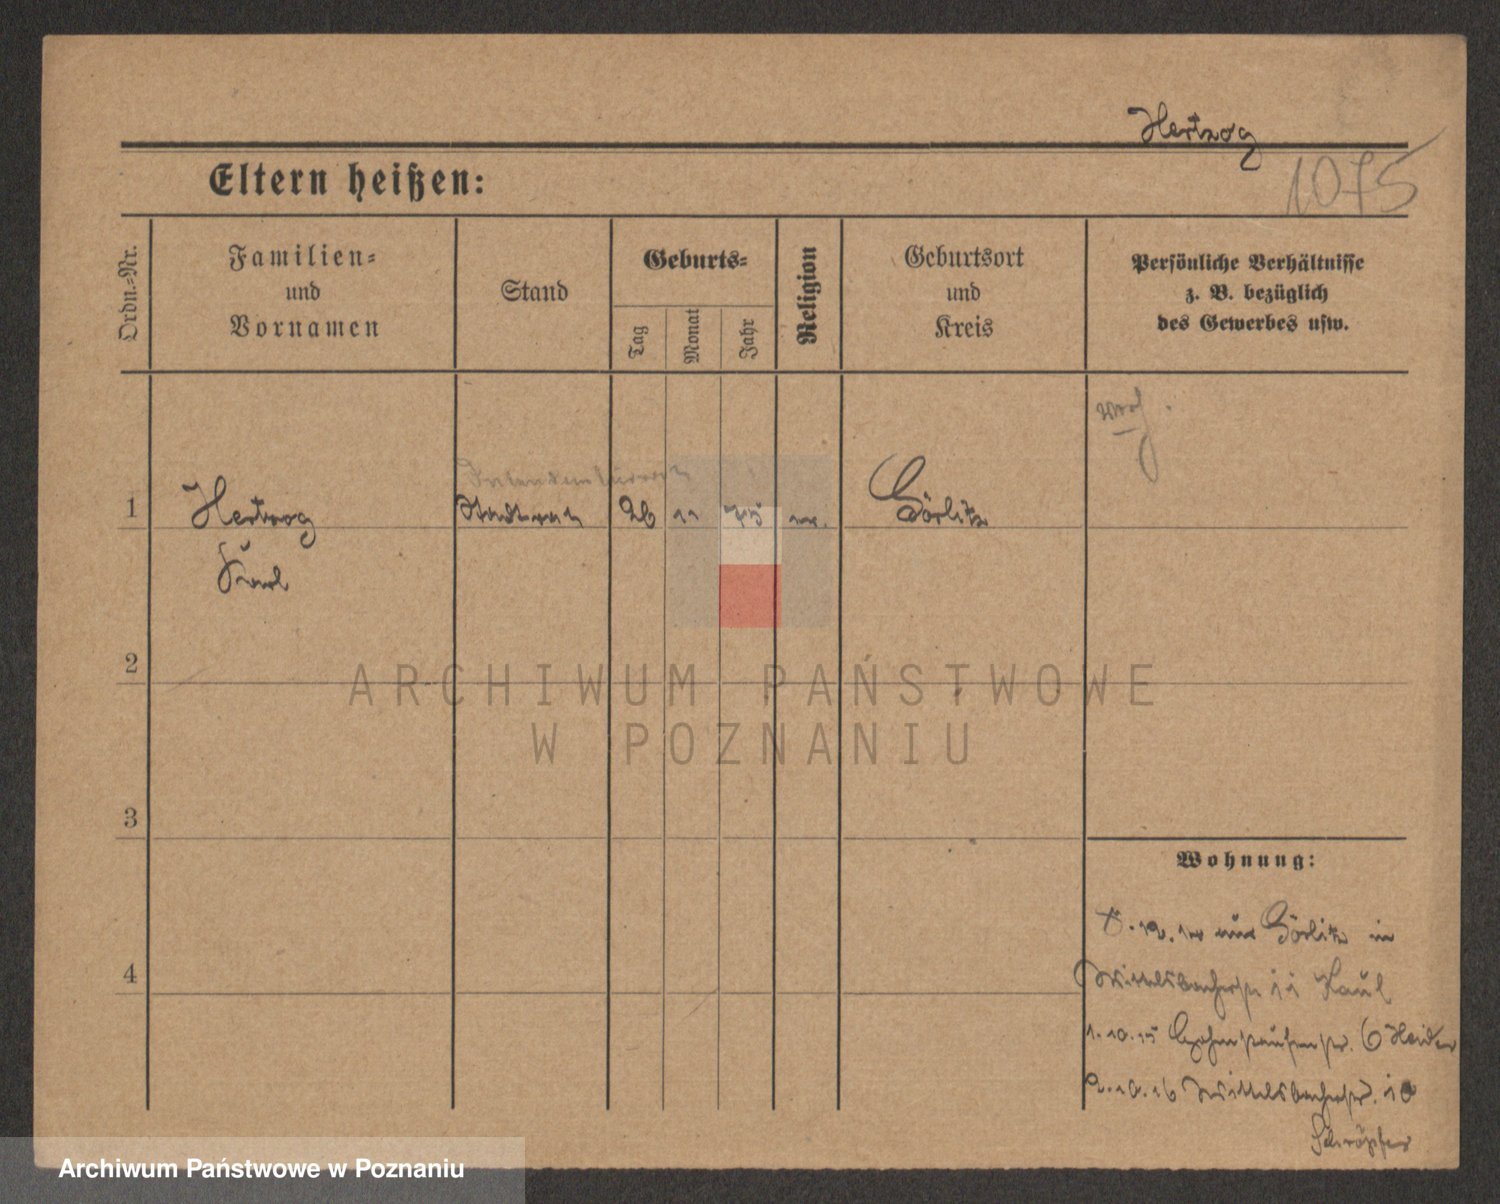 Hertzog
1075
Eltern heißen:
Ordn.-Nr.
Familien-
und
Vornamen
Stand
Geburts-
Tag
Monat
Jahr
Religion
Geburtsort
und
Kreis
Persönliche Verhältnisse
z. B. bezüglich
des Gewerbes usw.
1
Hertzog
Karl
Stadtrat
26
11
75
Görlitz
2
3
4
Wohnung:
aus Görlitz in
Wittelsbacherstr 11
1.10.15 Hohenstaufenstr. 6 Heider
2.10.16 Wittelsbacherstr. 10
Schröpfer
ARCHIWUM PAŃSTWOWE
W POZNANIU
Archiwum Państwowe w Poznaniu